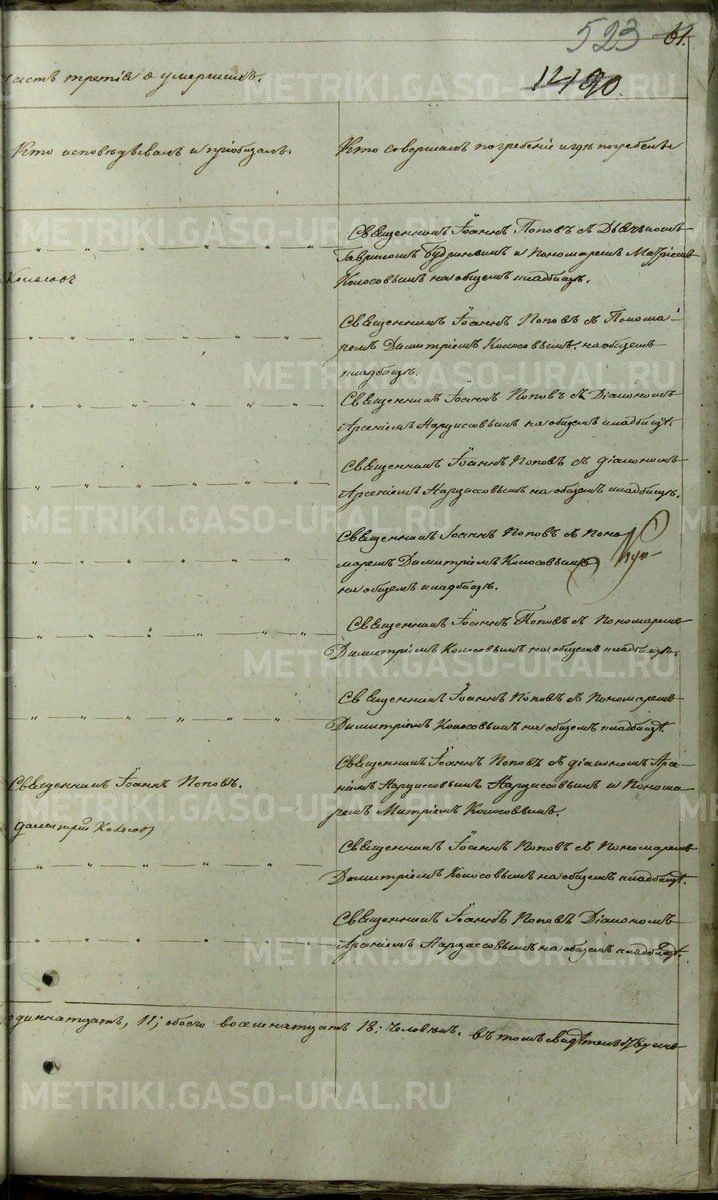 523 61.
1290.
часть третія о умершихъ.
Кто исповѣдывалъ и пріобщалъ.
Кто совершалъ погребеніе и гдѣ погребены
Священникъ Іоаннъ Поповъ съ Дьячкомъ
Гавриломъ и Пономаремъ
Колосовымъ на общемъ кладбищѣ.
Колосовъ
Священникъ Іоаннъ Поповъ съ Понома-
ремъ Димитріемъ Колосовымъ, на общемъ
кладбищѣ.
Священникъ Іоаннъ Поповъ съ Діакономъ
Арсеніемъ Нарциссовымъ на общемъ кладбищѣ.
Священникъ Іоаннъ Поповъ съ діакономъ
Арсеніемъ Нарциссовымъ на общемъ кладбищѣ.
Священникъ Іоаннъ Поповъ съ Поно
маремъ Димитріемъ Колосовымъ
на общемъ кладбищѣ.
Священникъ Іоаннъ Поповъ съ Пономаремъ
Димитріемъ Колосовымъ на общемъ кладбищѣ.
Священникъ Іоаннъ Поповъ съ Пономаремъ
Димитріемъ Колосовымъ на общемъ кладбищѣ.
Священникъ Іоаннъ Поповъ.
Священникъ Іоаннъ Поповъ съ діакономъ Арсе
ніемъ Нарциссовымъ Нарциссовымъ и Понома
ремъ Митріемъ Колосовымъ.
Дмитрій Колосовъ
Священникъ Іоаннъ Поповъ съ Пономаремъ
Димитріемъ Колосовымъ на общемъ кладбищѣ.
Священникъ Іоаннъ Поповъ Діакономъ
Арсеніемъ Нарциссовымъ на общемъ кладбищѣ.
одиннатцать, 11; обоего восемнатцать 18; человѣкъ. въ томъ
METRIKI.GASO-URAL.RU